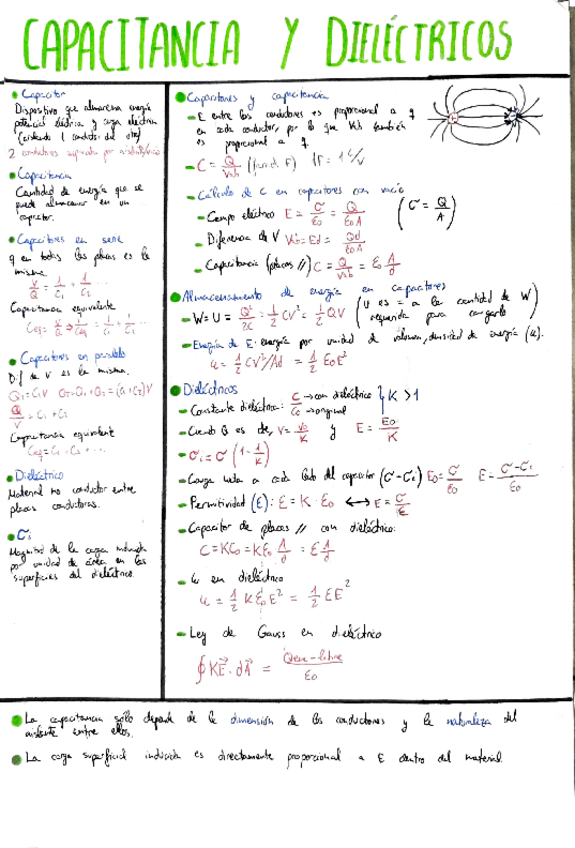 CAPACITANCIA Y DIELÉCTRICOS
Capacitor
Dispositivo que almacena energía
potencial eléctrica y carga eléctrica
(aislando 2 conductores del otro)
2 conductores separados por
Capacitancia
Cantidad de energía que se
puede almacenar en un
capacitor.
Capacitores en serie
q en todas las placas es la
misma.
V/Q = 1/C₁ + 1/C₂ ...
Capacitancia equivalente
Ceq = Q/V → 1/Ceq = 1/C₁ + 1/C₂ ...
Capacitores en paralelo
Dif de V es la misma.
Q₁ = C₁V Q = Q₁ + Q₂ = (C₁ + C₂)V
Q/V = C₁ + C₂
Capacitancia equivalente
Ceq = C₁ + C₂ + ...
Dieléctrico
Material no conductor entre
placas conductoras.
σᵢ
Magnitud de la carga inducida
por unidad de área en las
superficies del dieléctrico.
Capacitores y capacitancia
- E entre los conductores es proporcional a q
en cada conductor, por lo que Vab también
es proporcional a q.
- C = Q/Vab (farad, F) 1F = 1 C/V
- Cálculo de C en capacitores con vacío
- Campo eléctrico E = σ/ε₀ = Q/ε₀A (σ = Q/A)
- Diferencia de V Vab = Ed = Qd/ε₀A
- Capacitancia (placas //) C = Q/Vab = ε₀ A/d
Almacenamiento de energía en capacitores
- W = U = Q²/2C = 1/2 CV² = 1/2 QV (U es = a la cantidad de W
requerida para cargarlo)
- Energía de E: energía por unidad de volumen, densidad de energía (u).
u = 1/2 CV²/Ad = 1/2 ε₀E²
Dieléctricos
- Constante dieléctrica: C → con dieléctrico / C₀ → original } K > 1
- Cuando Q es cte, V = V₀/K y E = E₀/K
- σᵢ = σ (1 - 1/K)
- Carga neta a cada lado del capacitor (σ - σᵢ) E₀ = σ/ε₀ E = σ - σᵢ/ε₀
- Permitividad (ε): ε = K · ε₀ ↔ E = σ/ε
- Capacitor de placas // con dieléctrico:
C = KC₀ = Kε₀ A/d = ε A/d
- u en dieléctrico
u = 1/2 Kε₀E² = 1/2 εE²
- Ley de Gauss en dieléctrico
∮ KE⃗ · dA⃗ = Qenc-libre/ε₀
La capacitancia sólo depende de la dimensión de los conductores y la naturaleza del
aislante entre ellos.
La carga superficial inducida es directamente proporcional a E dentro del material.